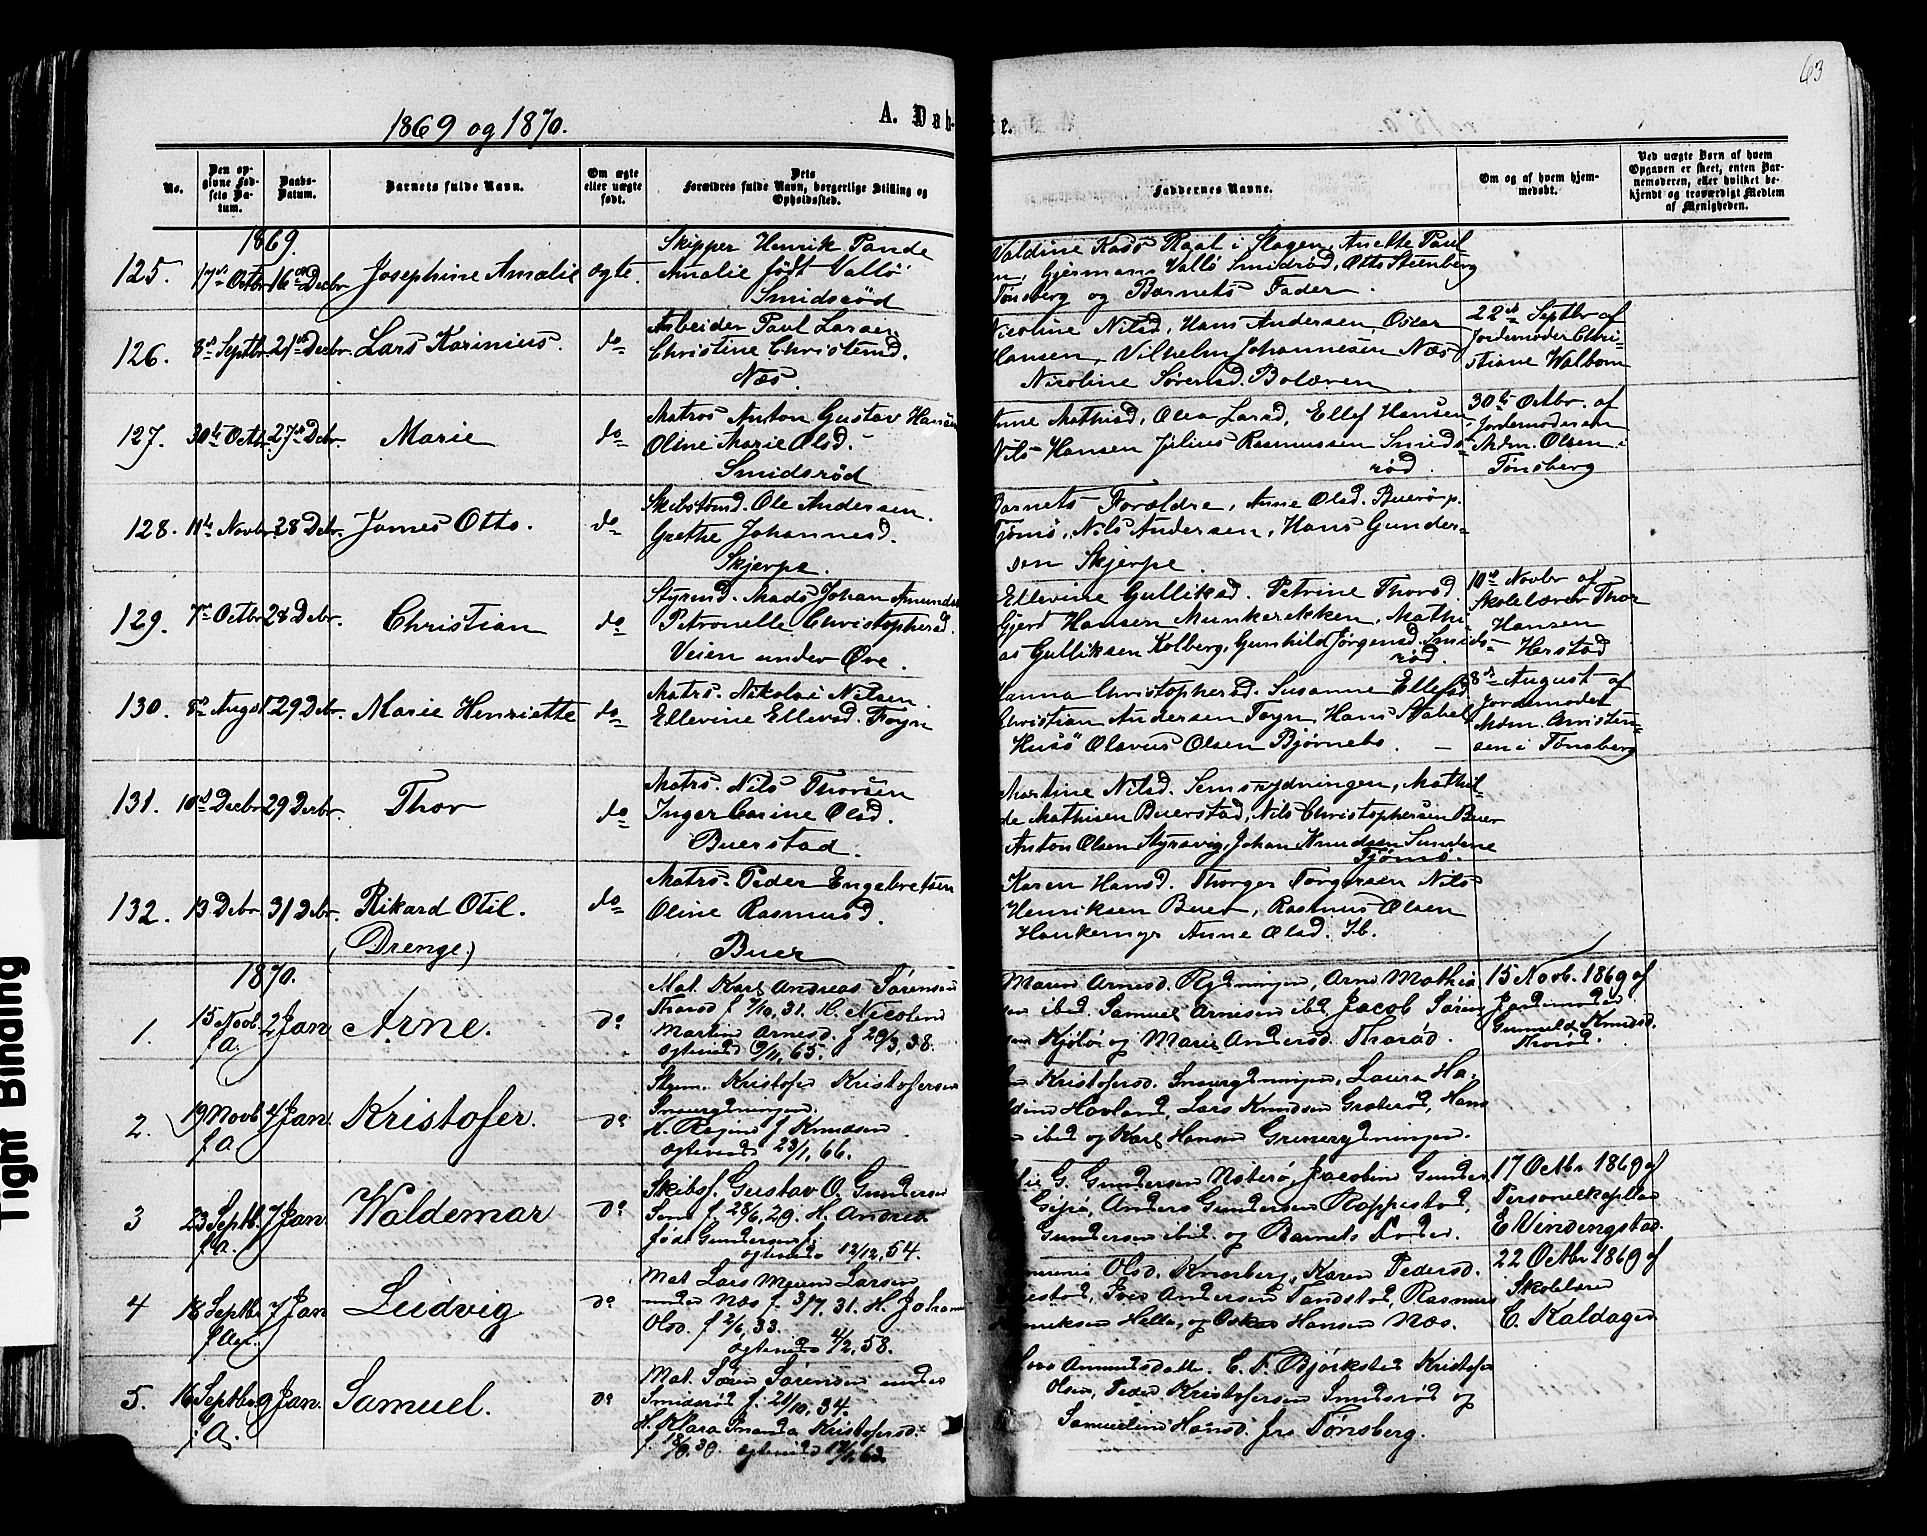 63
1869 og 1870.
A. Døb-
te.
No.
Den op-
givne Fød-
sels Da-
tum.
Daabs-
Datum.
Barnets fulde Navn.
Om ægte
eller uægte
født.
Dets
Forældres fulde Navn, borgerlige Stilling og
Opholdssted.
Faddernes Navne.
Om og af hvem hjem-
medøbt.
Ved uægte Børn af hvem
Opgaven er skeet, enten Bar-
nemoderen, eller hvilket be-
kjendt og troværdigt Medlem
af Menigheden.
1869.
125. 17de Octbr 16de Decbr Josephine Amalie ægte.
Skipper Henrik Pande
Amalie født Vallö
Smidsröd
Valdine Kass Raal i Slagen, Anette Paul
n, Gjerman Vallö Smidsröd, Otto Steenberg
Tönsberg og Barnets Fader.
126. 8de Septbr 21de Decbr Lars Karinius. do
Arbeider Paul Larsen
Christine Christensd.
Næs.
Nicoline Nilsd, Hans Andersen Oscar
Hansen, Vilhelm Johannesen Næs
Nicoline Sörensd. Bolæren
22de Septbr af
Jordemoder Chri-
stiane Walbom
127. 30te Octbr. 27de Debr. Marie do
Matros Anton Gustav Hansen
Oline Marie Olsd.
Smidsröd
nne Mathisd, Olea Larsd, Ellef Hansen
Nils Hansen Julius Rasmussen Smids-
röd.
30te Octbr. af
Jordemoderen
Mdm. Olsen i
Tönsberg
128. 11te Novbr. 28 Debr. James Otto. do
Skibstömd. Ole Andersen.
Grethe Johannesd.
Skjerpe.
Barnets Forældre, Anne Olsd. Bueröp.
Tjömö, Nils Andersen, Hans Gunder-
sen Skjerpe.
129. 7de Octbr 28 Debr. Christian do
Styrmd. Mads Johan Amundsen
Petronelle Christophersd.
Veien under Öre.
Ellevine Gulliksd. Petrine Thorsd.
Gjert Hansen Munkerekken, Mathi-
as Gulliksen Kolberg, Gunhild Jörgensd. Smids-
röd.
10de Novbr af
Skolelærer Thor
Hansen
Herstad
130. 8de Augst. 29 Debr. Marie Henriette do
Matrs. Nikolai Nilsen.
Ellevine Ellevsd. Foyn
Hanna Christophersd. Susanne Ellefsd.
Christian Andersen Foyn, Hans Stabel
Husö Olavus Olsen Björnebo.
8de August af
Jordemoder
Mdm. Christen-
sen i Tönsberg
131. 10de Decbr 29 Decbr Thor do
Matrs. Nils Thorsen
Inger Carine Olsd.
Buerstad.
Martine Nilsd. Semsrydningen, Mathil-
de Mathisen Buerstad, Nils Christophersen Buer
Anton Olsen Styrsvig, Johan Knudsen Sundene
Tjömö.
132. 13 Debr. 31 Debr. Rikard Otil. do
(Drenge)
Matrs. Peder Engebretsen
Oline Rasmusd.
Buer
Karen Hansd. Thorger Torgersen Nils
Henriksen Buer, Rasmus Olsen
Haukemyr Anne Olsd. Ib.
1870.
1. 15 Novb. f.A. 2 Jan Arne. do
Mat. Karl Andreas Sörensen
Tharöd f 7/10, 31. H. Nicoline
Martin Arnesd. f 20/3, 38.
ægteviede 9/11, 65.
Maren Arnesd. Rydningen, Arne Mathia
en ibid Samuel Arnesen ibd, Jacob Sören
en Kjölö og Marie Andersd. Tharöd.
15 Novb. 1869 af
Jordemoder
Gunnild Knudsd.
2. 19 Novb f.A. 4 Jan. Kristofer. do
Styrm. Kristofer Kristofersen
H. Regine f. Knudsen
ægteviede 23/1, 66.
Kristofersd. Laura Ha-
Hovland, Lars Knudsen Graberöd, Hans
ibid og Karl Hansen Grinerydningen.
3 23 Septb. f.A. 7 Jan Waldemar do
Skibsf. Gustav O. Gundersen
Sem f. 28/6, 29. H. Andrea
født Gundersen f.
ægteviede 12/12, 54.
lie G. Gundersen Nöterö, Jacobine Gunder
Gipö, Anders Gundersen Roppestad,
Gundersen ibid. og Barnets Fader.
17 Octbr. 1869 af
Personelkapellan
E. Vindingstad.
4 18 Septbr f.A. 7 Jan Ludvig do
Mat Lars Larsen
under Næs f. 3/7. 31. H. Johanne
Olsd. f 2/6, 33.
ægteviede 4/2, 58.
Olsd. Knarberg, Karen Pedersd.
Andersen Tandstad, Rasmus
nriksen Hella, og Oskar Hansen Næs.
22 Octbr 1869 af
Skolelærer
C. Kaldager
5. 16 Septbr f.A. 9 Jan. Samuel. do
Mat. Sören Sörensen under
Smidsröd f. 21/10, 34.
H. Klara Kristofersd.
f. 18/9. 30. ægteviede
Amundsdatter. C. F. Björkstad Kristofer
Olsen, Peder Kristofersen Smidsröd og
Samueline Hansd. fra Tönsberg.
Tight Binding